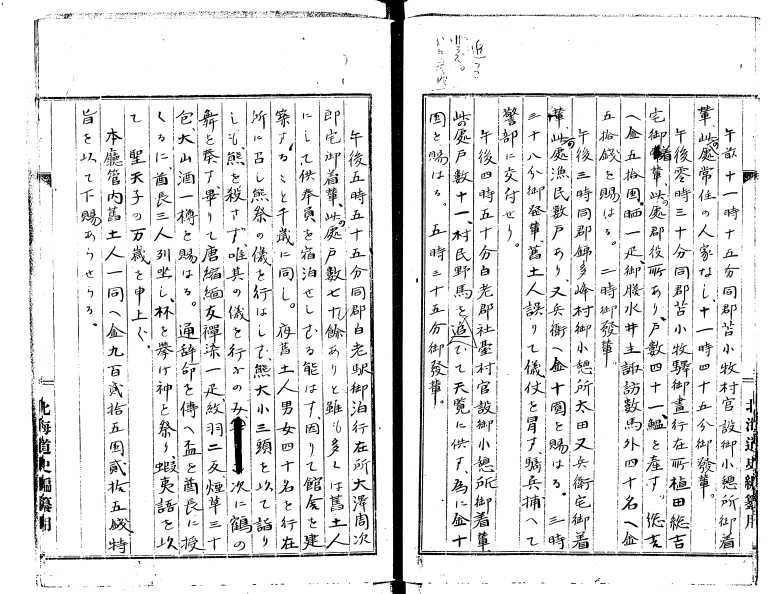 午前十一時十五分同郡苫小牧村官設御小憩所御着
輦此處常住の人家なし、十一時四十五分御發輦。
午後零時三十分同郡苫小牧驛御晝行在所植田総吉
宅御着輦、此處郡役所あり、戸數四十一、鰮を産す。総吉
へ金五拾圓、晒一疋、御膳水井主諏訪數馬外四十名へ金
五拾錢を賜はる。二時御發輦。
午後三時同郡錦多峰村御小憩所太田又兵衛宅御着
輦、此の處漁民數戸あり、又兵衛へ金十圓を賜はる。三時
三十八分御發輦、舊土人誤りて儀仗を冒す、騎兵捕へて
警部に交付せり。
午後四時五十分白老郡社臺村官設御小憩所御着輦
此の處戸數十一、村民野馬を追ひて天覧に供す、為に金十
圓を賜はる。五時三十五分御發輦。
午後五時五十五分同郡白老驛御泊行在所大澤周次
郎宅御着輦、此の處戸數七九餘ありと雖も多くは舊土人
にして供奉員を宿泊せしむる能はす、因りて館舍を建
築すること千歳に同し。夜舊土人男女四十名を行在
所に召し熊祭の儀を行はしむ、熊大小三頭を以て詣り
しも、熊を殺さず唯其の儀を行ふのみ 次に鶴の
舞を奏す畢りて唐縮緬友禅染一疋、紋羽二反、煙草三十
包、大山酒一樽を賜はる。通辞命を傳へ盃を酋長に授
くるに酋長三人列坐し、杯を擧げ神を祭り、蝦夷語を以
て 聖天子の万歳を申上ぐ。
本廳管内舊土人一同へ金九百貳拾五圓貳拾五錢特
旨を以て下賜あらせらる。
北海道史編纂用
北海道史編纂用